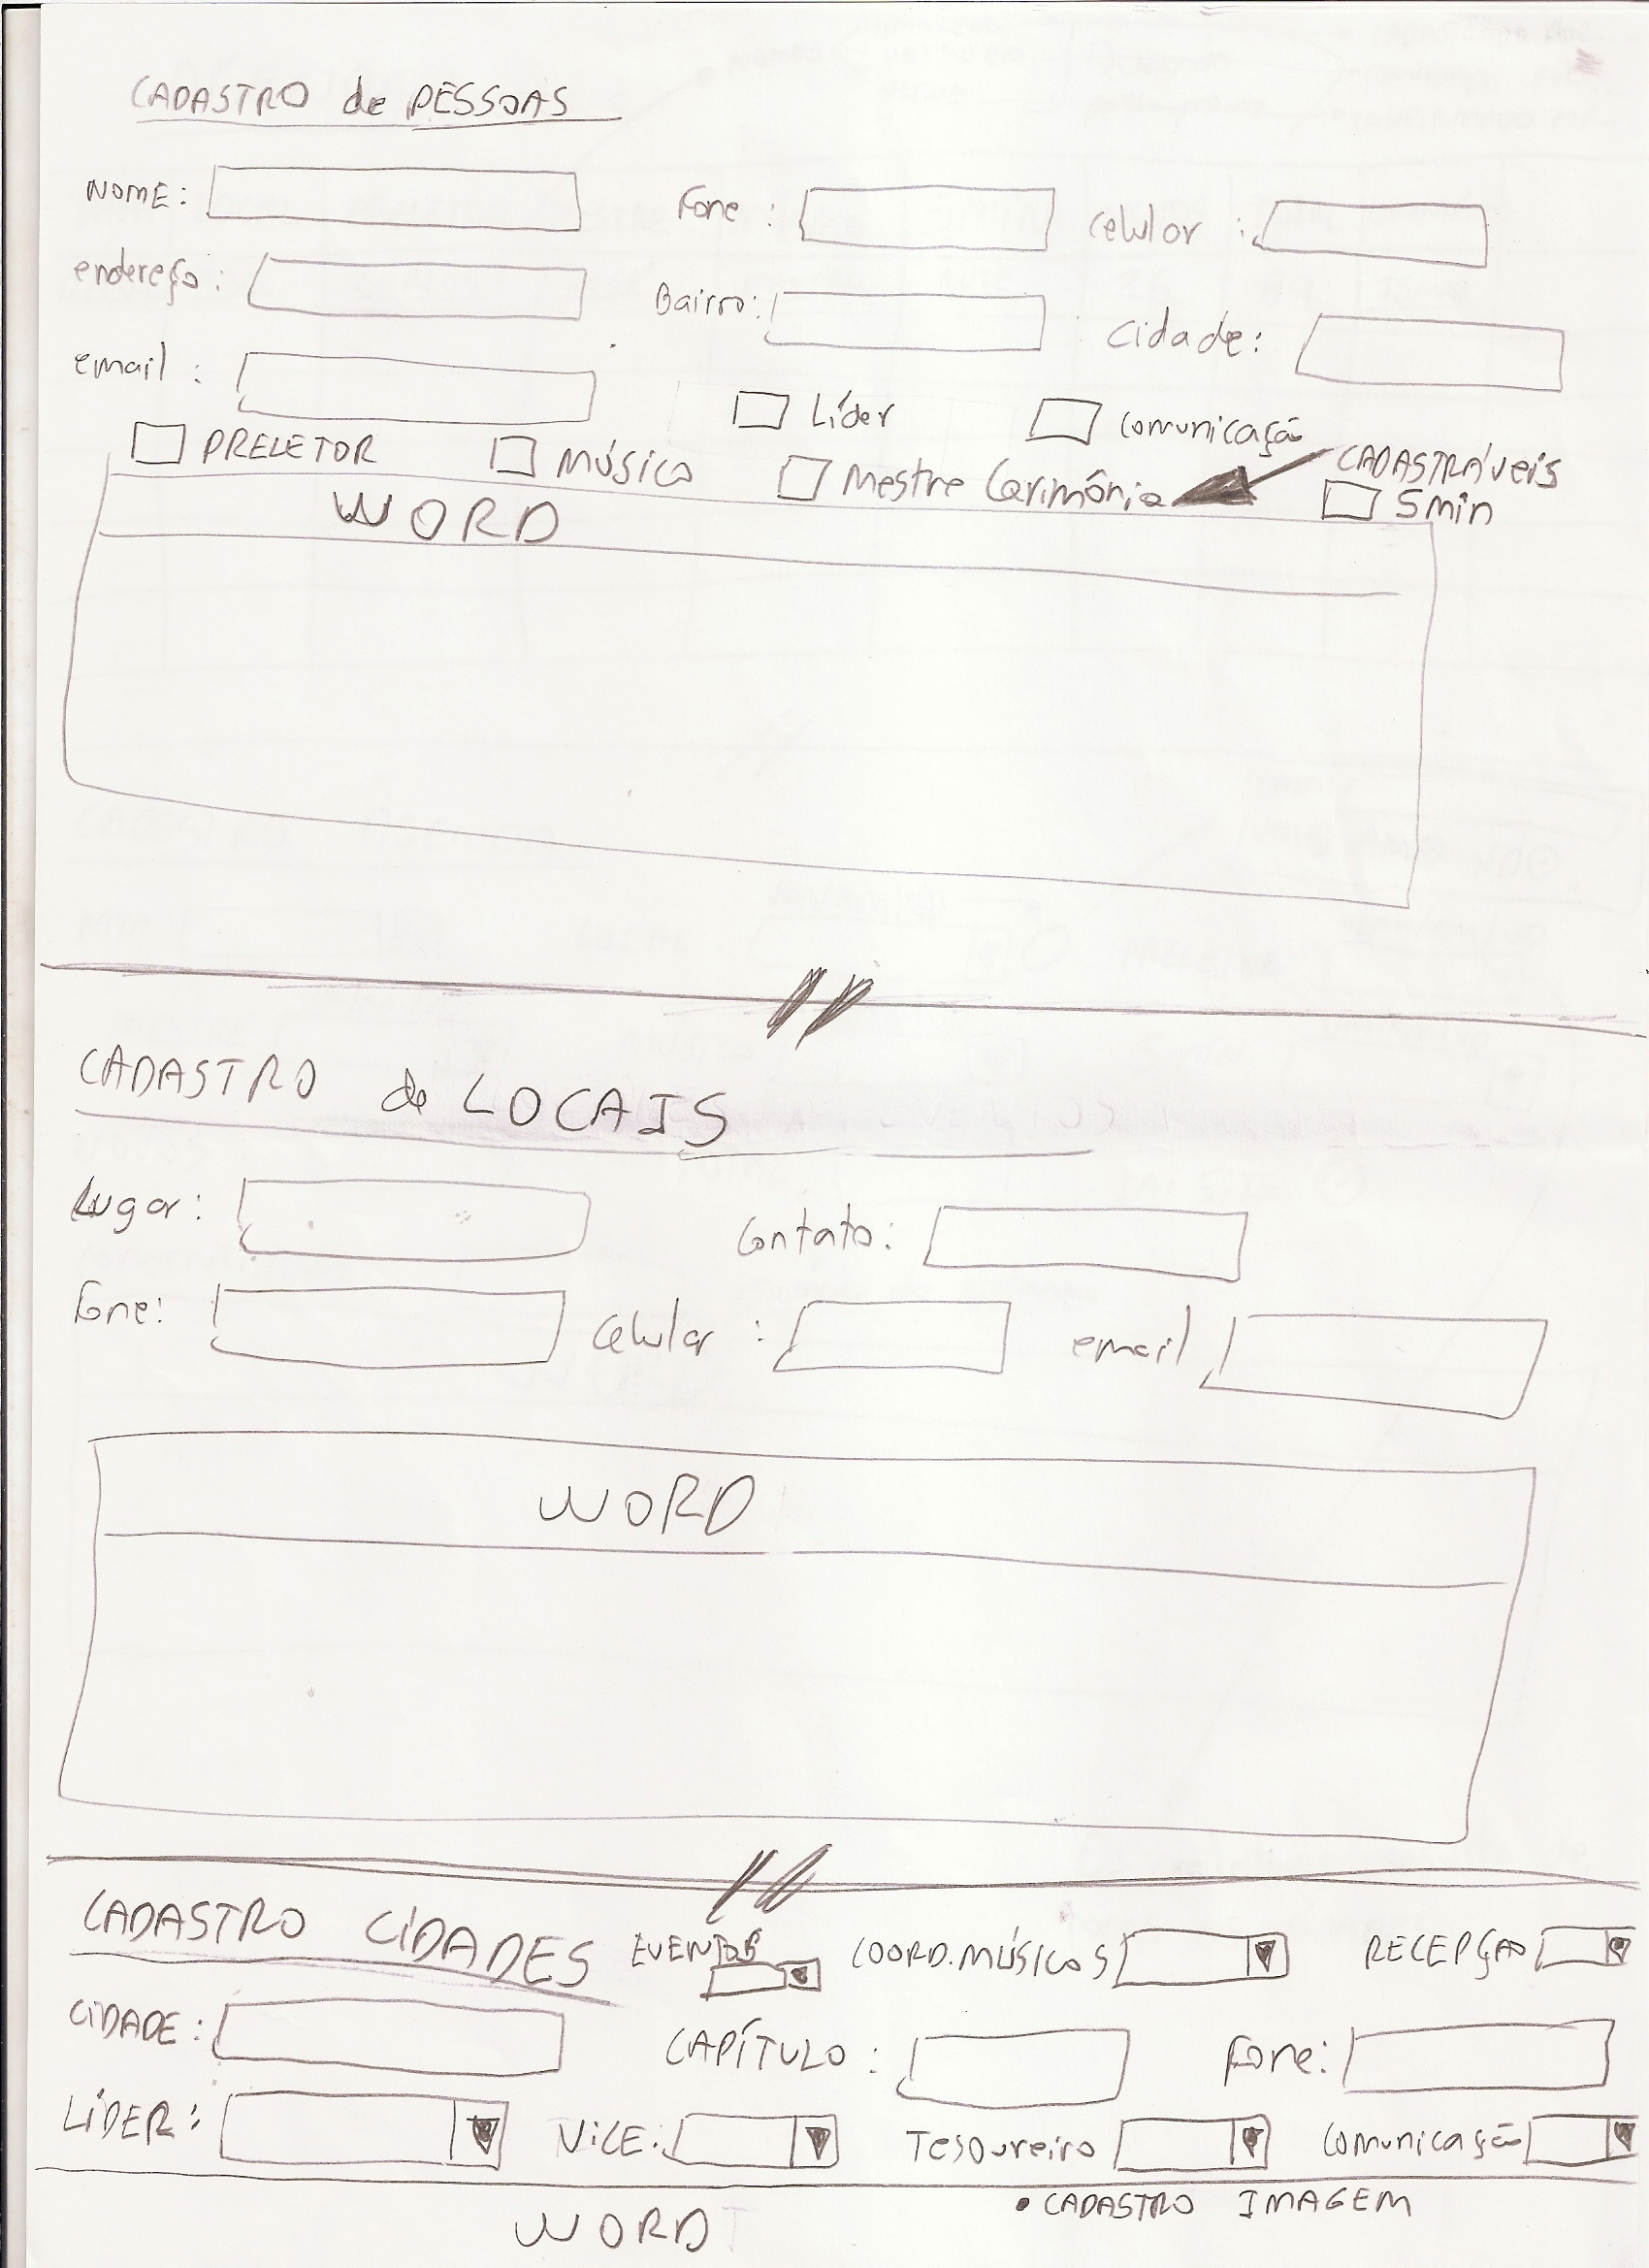 CADASTRO de PESSOAS
NOME: Fone : Celular :
endereço : Bairro: Cidade:
email :
Líder Comunicação
PRELETOR Músico Mestre Cerimônia CADASTRÁVEIS
5min
WORD
CADASTRO de LOCAIS
Lugar: Contato:
Fone: Celular : email
WORD
CADASTRO CIDADES EVENTOS COORD. MÚSICOS RECEPÇÃO
CIDADE: CAPÍTULO : Fone:
LÍDER: VICE: Tesoureiro Comunicação
• CADASTRO IMAGEM
WORD